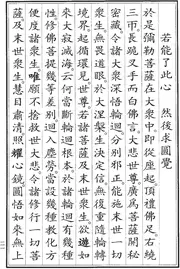 若能了此心　然後求圓覺
於是彌勒菩薩在大眾中即從座起頂禮佛足右繞
三帀長跪叉手而白佛言大悲世尊廣為菩薩開祕
密藏令諸大眾深悟輪迴分別邪正能施末世一切
眾生無畏道眼於大涅槃生決定信無復重隨輪轉
境界起循環見世尊若諸菩薩及末世眾生欲遊如
來大寂滅海云何當斷輪迴根本於諸輪迴有幾種
性修佛菩提幾等差別迴入塵勞當設幾種教化方
便度諸眾生唯願不捨救世大悲令諸修行一切菩
薩及末世眾生慧目肅清照耀心鏡圓悟如來無上